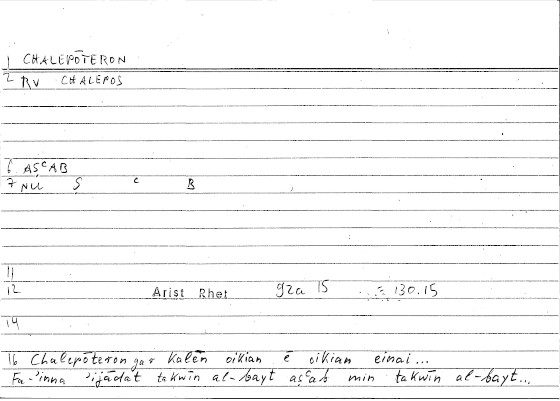 1 CHALEPŌTERON
2 RV CHALEPOS
6 AṢcAB
7 NU Ṣ c B
11
12 Arist Rhet 92a 15 = 130.15
14
16 Chalepōteron gar kalēn oikian ē oikian einai...
Fa-'inna 'ijādat takwīn al-bayt aṣcab min takwīn al-bayt...